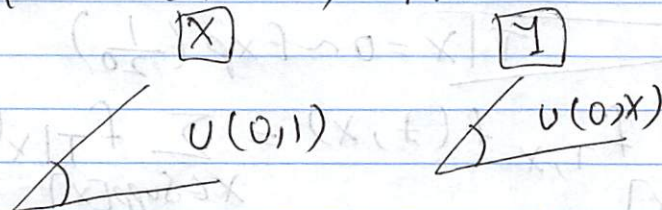 X Y
U(0,1) U(0,X)